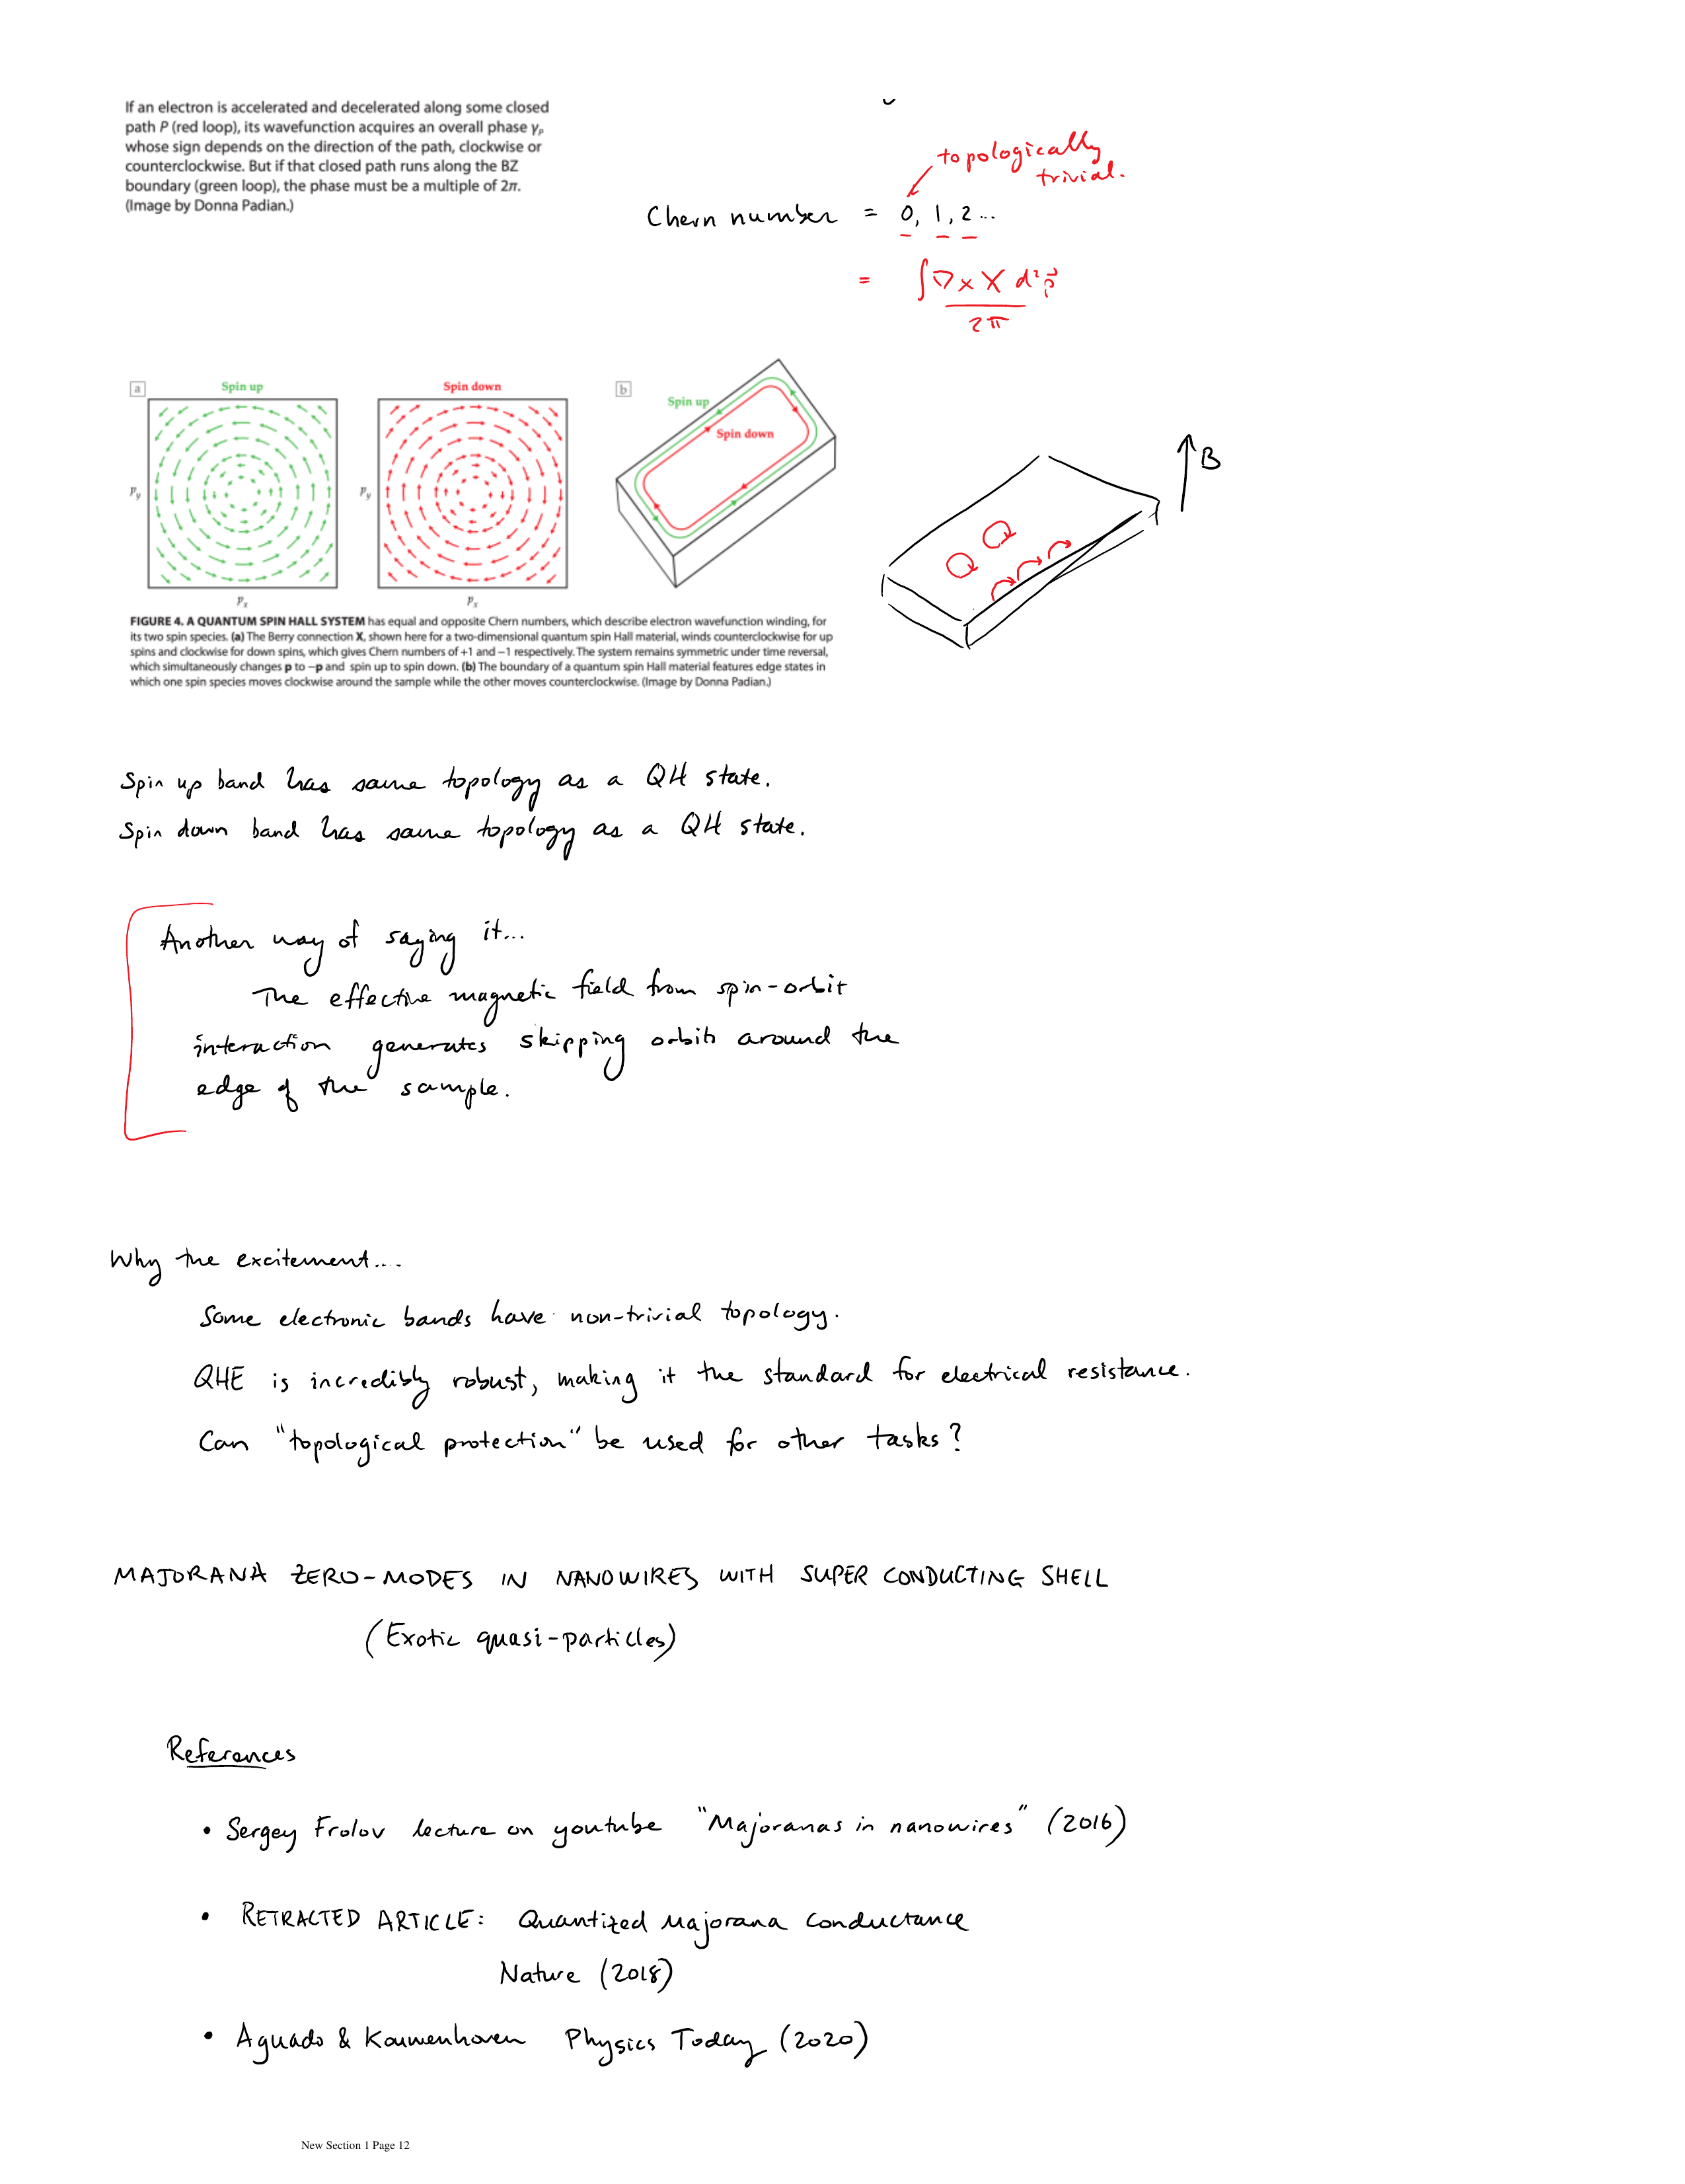 If an electron is accelerated and decelerated along some closed
path P (red loop), its wavefunction acquires an overall phase γₚ
whose sign depends on the direction of the path, clockwise or
counterclockwise. But if that closed path runs along the BZ
boundary (green loop), the phase must be a multiple of 2π.
(Image by Donna Padian.)
topologically
trivial.
Chern number = 0, 1, 2...
= ∫∇×X d²p⃗
2π
a
Spin up
Spin down
b
Spin up
Spin down
p_y
p_y
p_x
p_x
B
FIGURE 4. A QUANTUM SPIN HALL SYSTEM has equal and opposite Chern numbers, which describe electron wavefunction winding, for
its two spin species. (a) The Berry connection X, shown here for a two-dimensional quantum spin Hall material, winds counterclockwise for up
spins and clockwise for down spins, which gives Chern numbers of +1 and −1 respectively. The system remains symmetric under time reversal,
which simultaneously changes p to −p and spin up to spin down. (b) The boundary of a quantum spin Hall material features edge states in
which one spin species moves clockwise around the sample while the other moves counterclockwise. (Image by Donna Padian.)
Spin up band has same topology as a QH state.
Spin down band has same topology as a QH state.
Another way of saying it...
The effective magnetic field from spin-orbit
interaction generates skipping orbits around the
edge of the sample.
Why the excitement....
Some electronic bands have non-trivial topology.
QHE is incredibly robust, making it the standard for electrical resistance.
Can "topological protection" be used for other tasks?
MAJORANA ZERO-MODES IN NANOWIRES WITH SUPER CONDUCTING SHELL
(Exotic quasi-particles)
References
• Sergey Frolov lecture on youtube "Majoranas in nanowires" (2016)
• RETRACTED ARTICLE: Quantized Majorana conductance
Nature (2018)
• Aguado & Kouwenhoven Physics Today (2020)
New Section 1 Page 12